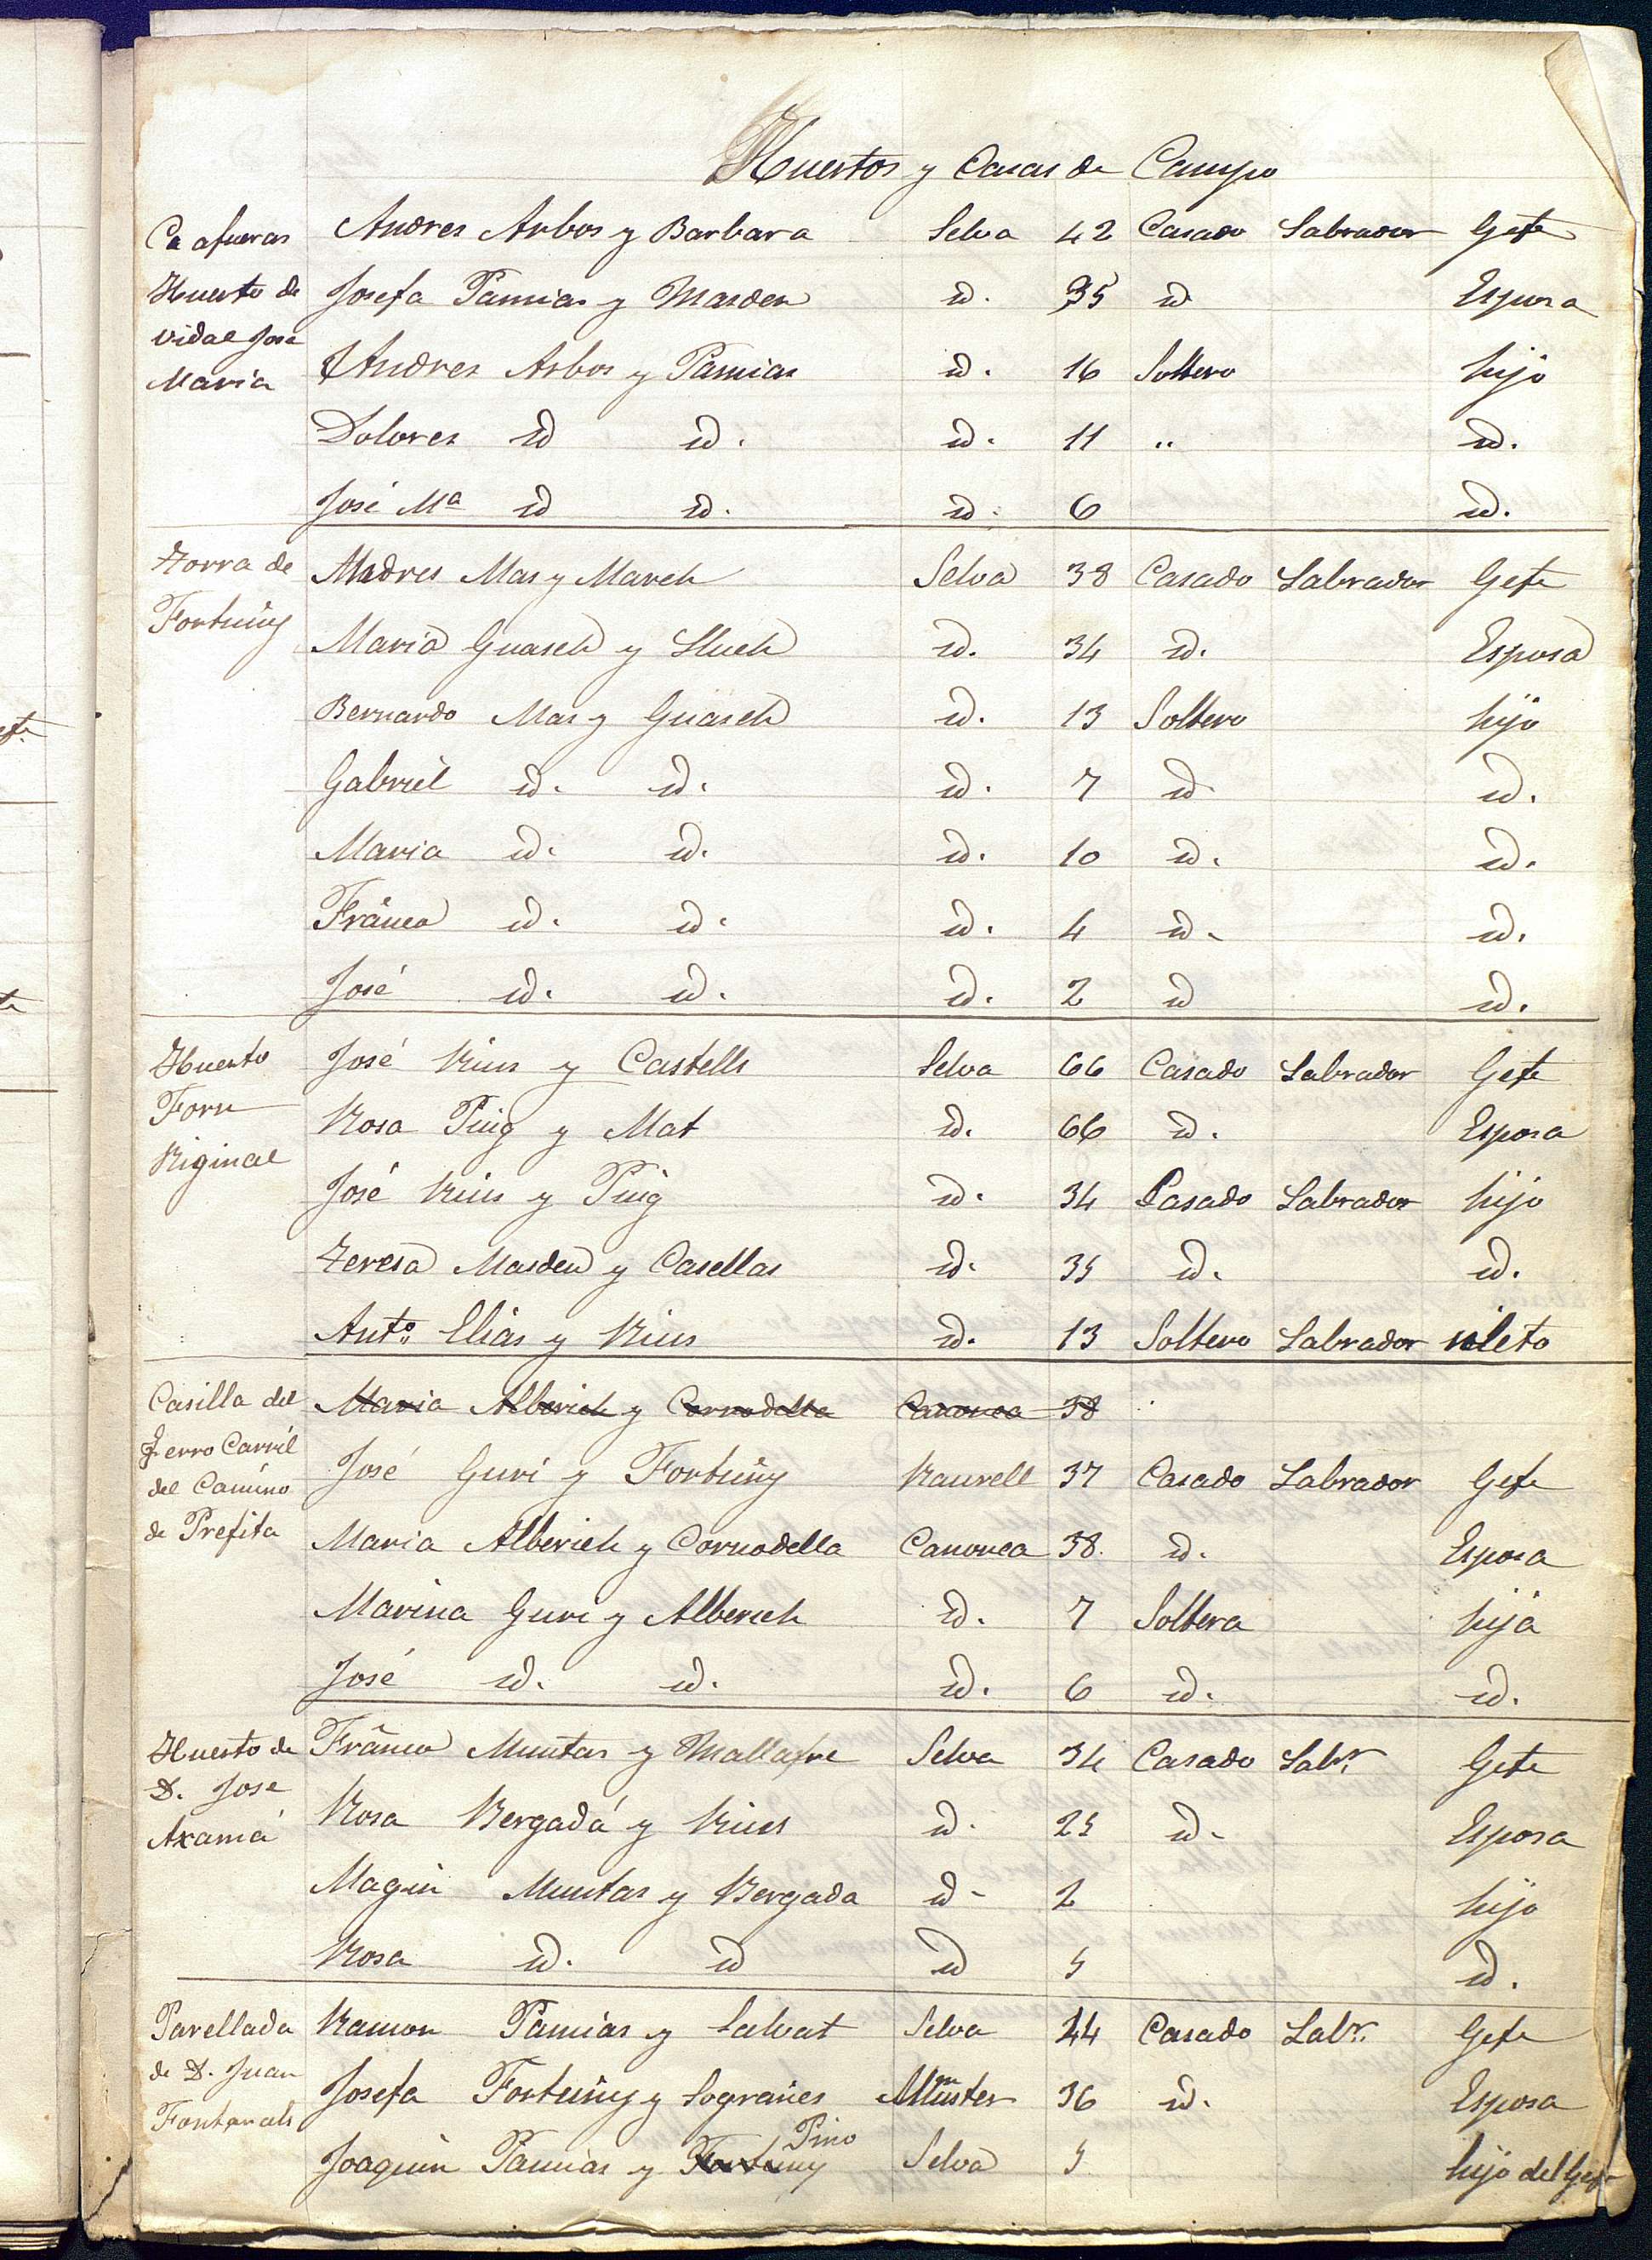 Huertos y Casas de Campo
Ca afueras Andres Arbos y Barbara Selva 42 Casado Labrador Gefe
Huerto de Josefa Pamias y Masdeu id. 35 id Esposa
Vidal Jose
Maria Andres Arbos y Pamias id. 16 Soltero hijo
Dolores id id. id. 11 „ id.
José Mª id id. id. 6 id.
Torra de Andres Mas y March Selva 38 Casado Labrador Gefe
Fortuñy Maria Guasch y Lluch id. 34 id. Esposa
Bernardo Mas y Guasch id. 13 Soltero hijo
Gabriel id. id. id. 7 id id.
Maria id. id. id. 10 id. id.
Franca id. id. id. 4 id. id.
José id. id. id. 2 id id.
Huerto José Rius y Castells Selva 66 Casado Labrador Gefe
Forn Rosa Puig y Mat id. 66 id. Esposa
Riginal José Rius y Puig id. 34 Casado Labrador hijo
Teresa Masdeu y Casellas id. 35 id. id.
Antº Elias y Rius id. 13 Soltero Labrador nieto
Casilla del Maria Alberich y Cornodella Canonca 38
Ferro Carril José Guri y Fortuñy Raurell 37 Casado Labrador Gefe
del Camino
de Prefita Maria Alberich y Cornodella Canonca 38. id. Esposa
Marina Guri y Alberich id. 7 Soltera hija
José id. id. id. 6 id. id.
Huerto de Franco Muntas y Mallafre Selva 34 Casado Labr. Gefe
D. Jose Rosa Vergadá y Rius id. 25 id. Esposa
Axamá
Magin Muntas y Vergada id. 2 hijo
Rosa id. id id 5 id.
Parellada Ramon Pamias y Salvat Selva 44 Casado Labr. Gefe
de D. Juan Josefa Fortuñy y Sograñes Muster 36 id. Esposa
Fontarals Pino
Joaquin Pamias y Fortuny Selva 5 hijo del Gefe